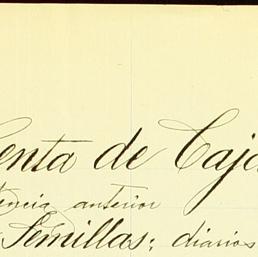 enta de Caja
tencia anterior
Semillas; diarios